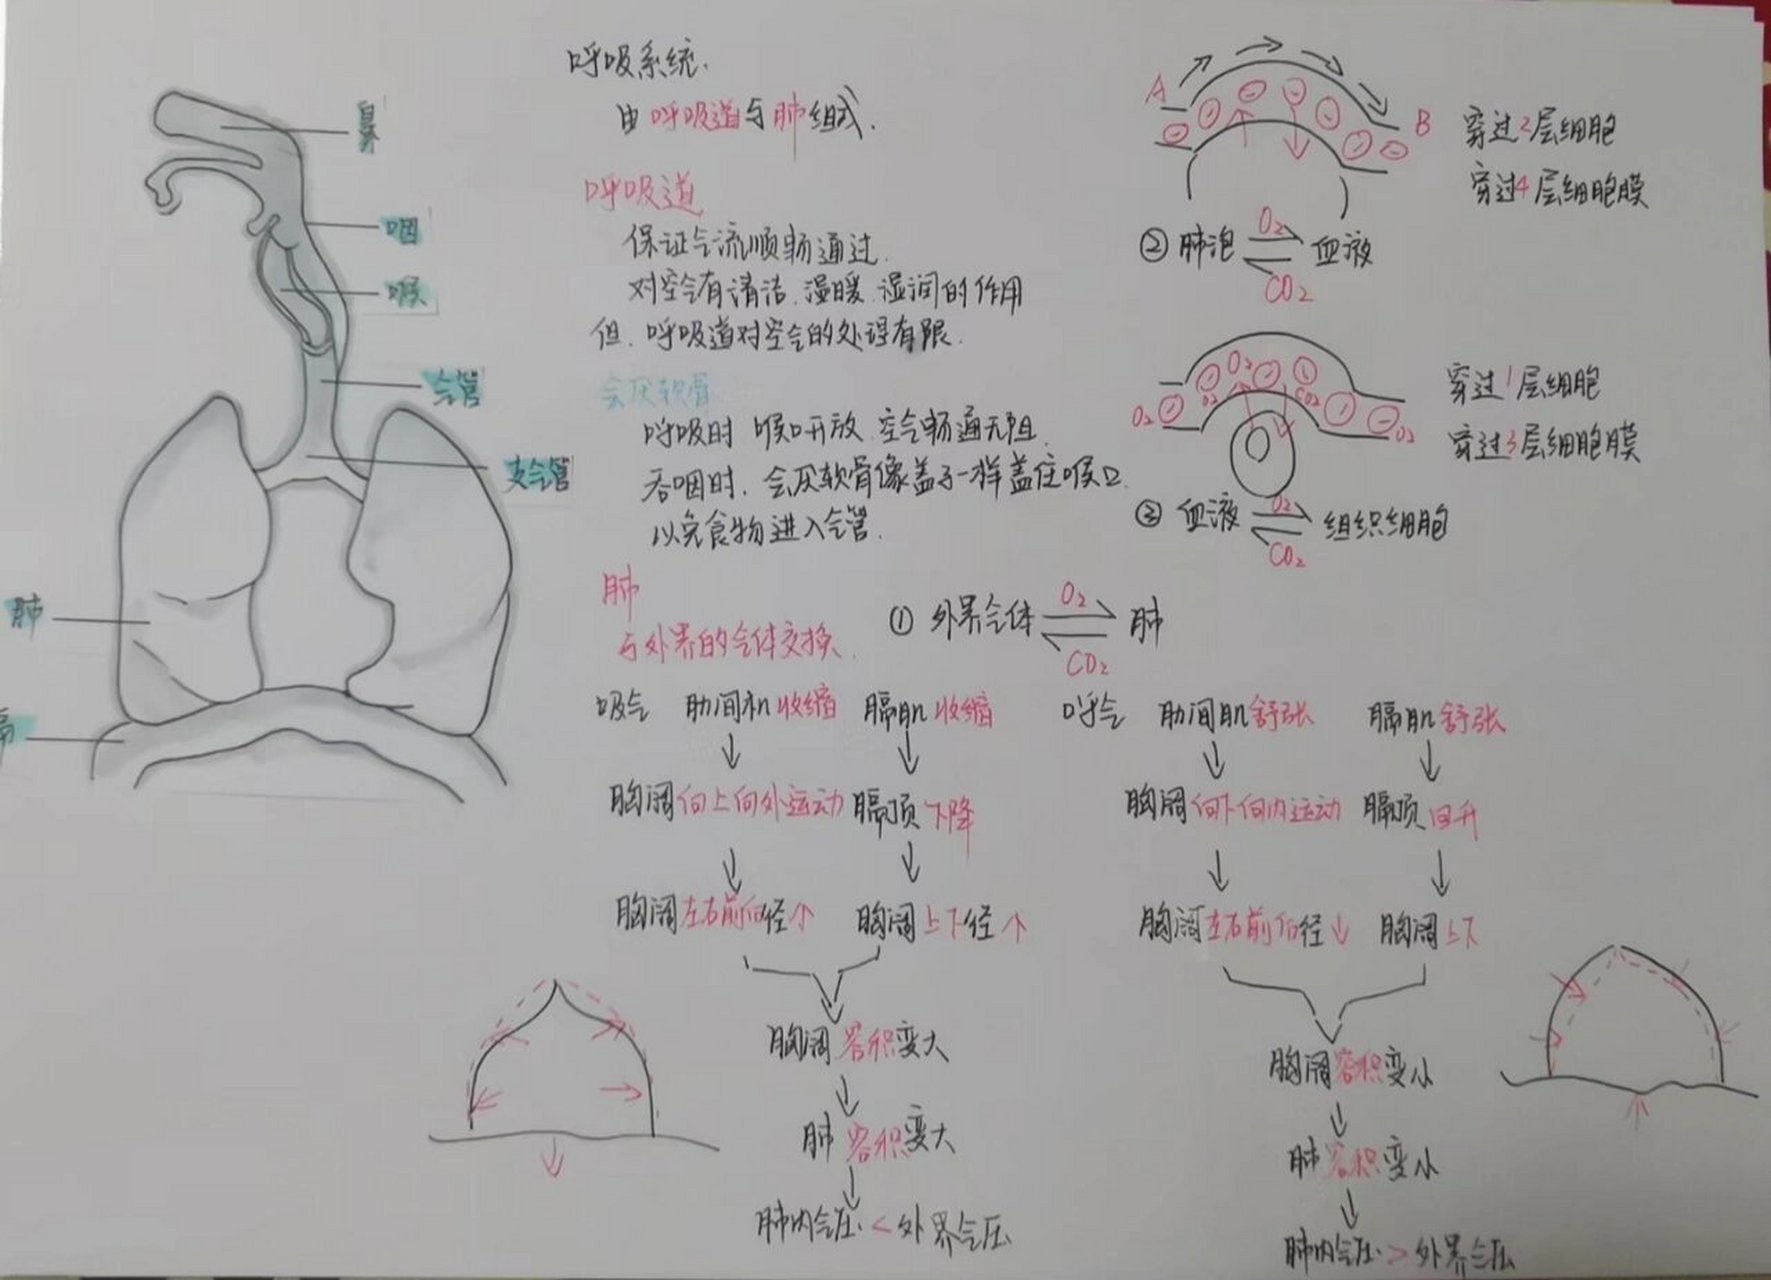 呼吸系统.
由呼吸道与肺组成.
呼吸道
保证气流顺畅通过.
对空气有清洁.温暖.湿润的作用
但.呼吸道对空气的处理有限.
会厌软骨
呼吸时 喉口开放 空气畅通无阻.
吞咽时. 会厌软骨像盖子一样盖住喉口.
以免食物进入气管.
肺
与外界的气体交换.
鼻
咽
喉
气管
支气管
肺
膈
A
B
穿过2层细胞
穿过4层细胞膜
② 肺泡 O₂ ⇌ CO₂ 血液
O₂ O₂ O₂ CO₂ O₂
穿过1层细胞
穿过3层细胞膜
③ 血液 O₂ ⇌ CO₂ 组织细胞
① 外界气体 O₂ ⇌ CO₂ 肺
吸气 肋间肌收缩 膈肌收缩
↓ ↓
胸阔向上向外运动 膈顶下降
↓ ↓
胸阔左右前后径↑ 胸阔上下径↑
胸阔容积变大
↓
肺容积变大
↓
肺内气压<外界气压
呼气 肋间肌舒张 膈肌舒张
↓ ↓
胸阔向下向内运动 膈顶回升
↓ ↓
胸阔左右前后径↓ 胸阔上下
胸阔容积变小
↓
肺容积变小
↓
肺内气压>外界气压